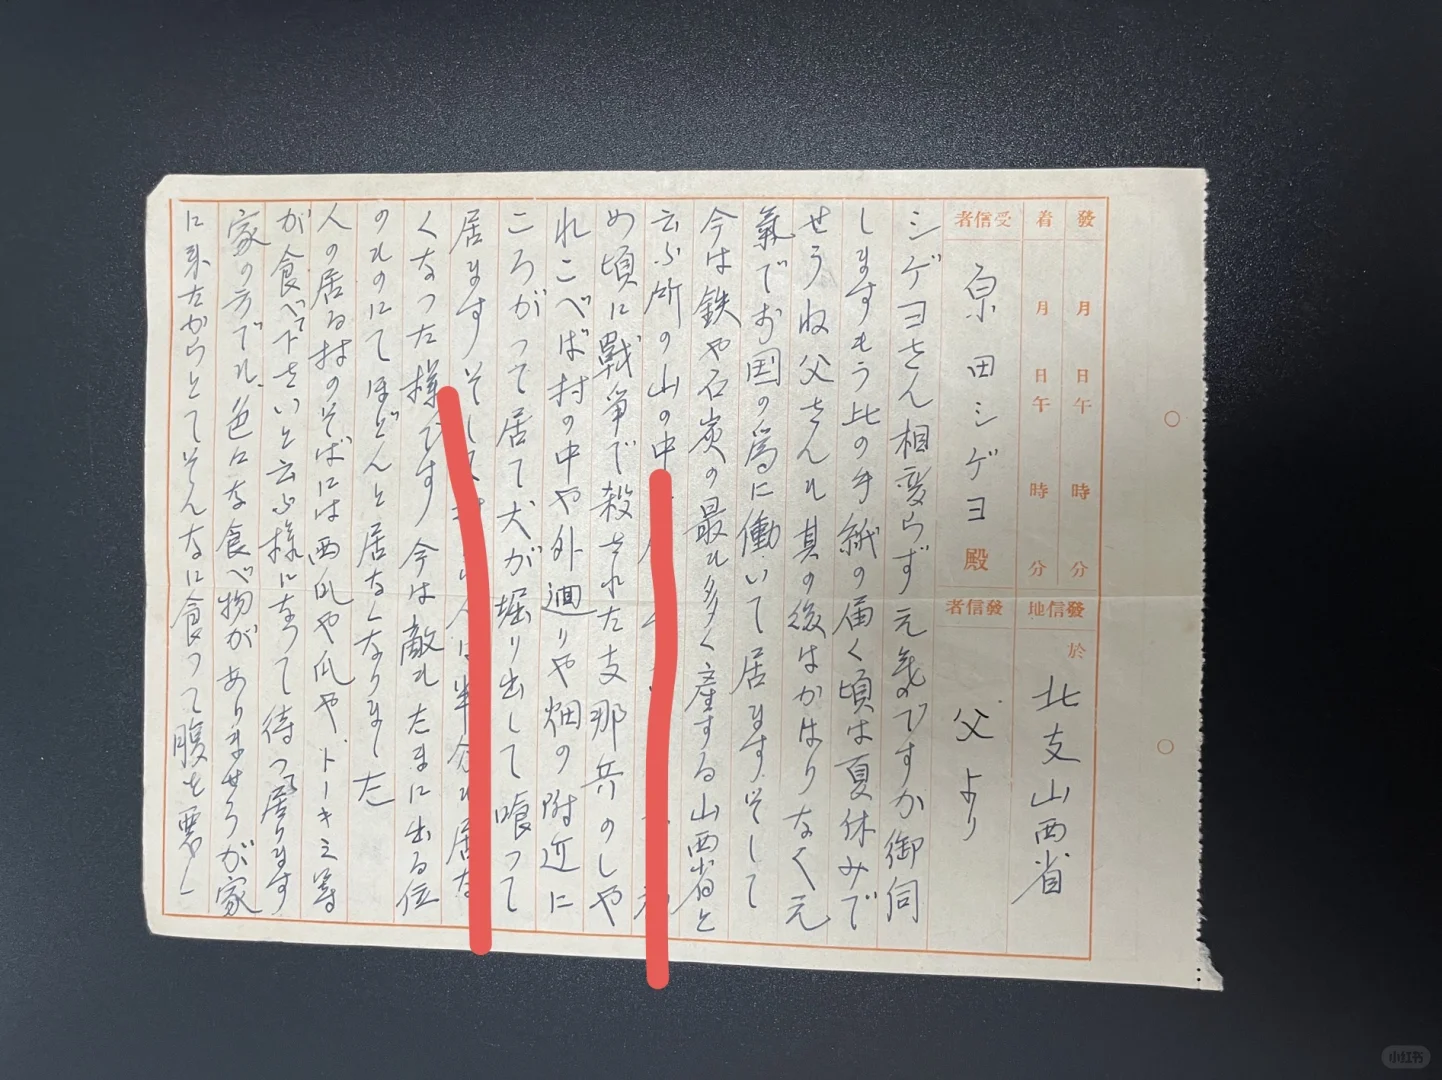 發 月 日 午 時 分
着 月 日 午 時 分
發信地 於 北支山西省
受信者 原田シゲヨ 殿
發信者 父より
シゲヨさん相変らず元気ですか御伺
しますもう此の手紙の届く頃は夏休みで
せうね父さんも其の後はかはりなく元
氣でお国の爲に働いて居ます そして
今は鉄や石炭の最も多く産する山西省と
云ふ所の山の中
め頃に戰争で殺された支那兵のしや
れこべば村の中や外廻りや畑の附近に
ころがって居て犬が堀り出して喰って
居ます そして は半分も居な
くなった様です 今は敵もたまに出る位
のものにてほどんと居なくなりました
人の居る村のそばには西瓜や瓜やトーキミ等
が食べて下さいと云ふ様になって待つ居ります
家の方でも色々な食べ物がありませうが家
に来たからとてそんなに食って腹を悪し
小红书